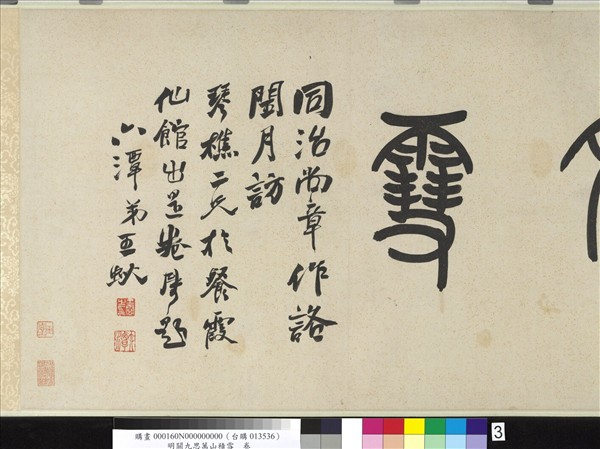 雪
同治尚章作詻
閏月訪
琴樵二兄於餐霞
仙館出是卷屬題
六潭弟
購畫 000160N000000000（台購 013536）
明關九思萬山積雪 卷
3